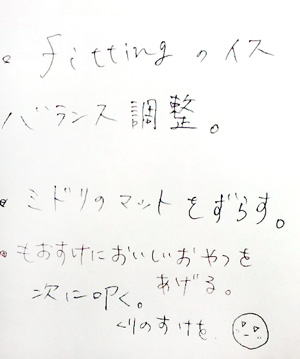 ・fittingのイス
バランス調整。
・ミドリのマットをずらす。
・もおすけにおいしいおやつを
あげる。
次に叩く。
くりのすけを